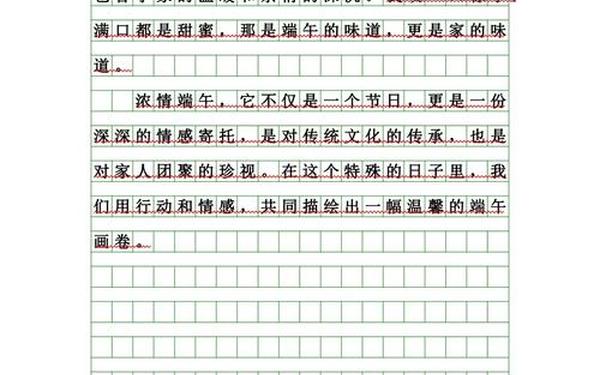 满口都是甜蜜，那是端午的味道，更是家的味
道。
浓情端午，它不仅是一个节日，更是一份
深深的情感寄托，是对传统文化的传承，也是
对家人团聚的珍视。在这个特殊的日子里，我
们用行动和情感，共同描绘出一幅温馨的端午
画卷。